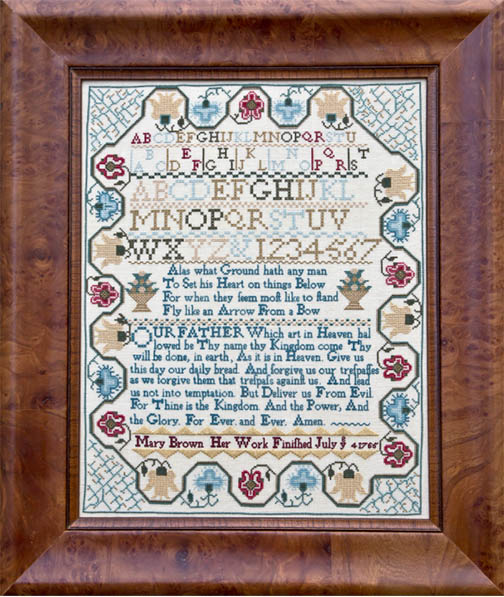 ABCDEFGHIJKLMNOPQRSTU
ABCDEFGHIJKLMNOPQRST
ABCDEFGHIJKL
MNOPQRSTUV
WXYZ&1234567
Alas what Ground hath any man
To Set his Heart on things Below
For when they ſeem moſt like to ſtand
Fly like an Arrow From a Bow
OUR FATHER Which art in Heaven hal
lowed be Thy name thy Kingdom come Thy
will be done, in earth, As it is in Heaven. Give us
this day our daily bread. And forgive us our treſpaſſes
as we forgive them that treſpaſs againſt us. And lead
us not into temptation. But Deliver us From Evil.
For Thine is the Kingdom And the Power, And
the Glory. For Ever and Ever. Amen.
Mary Brown Her Work Finiſhed July ye 4 1766